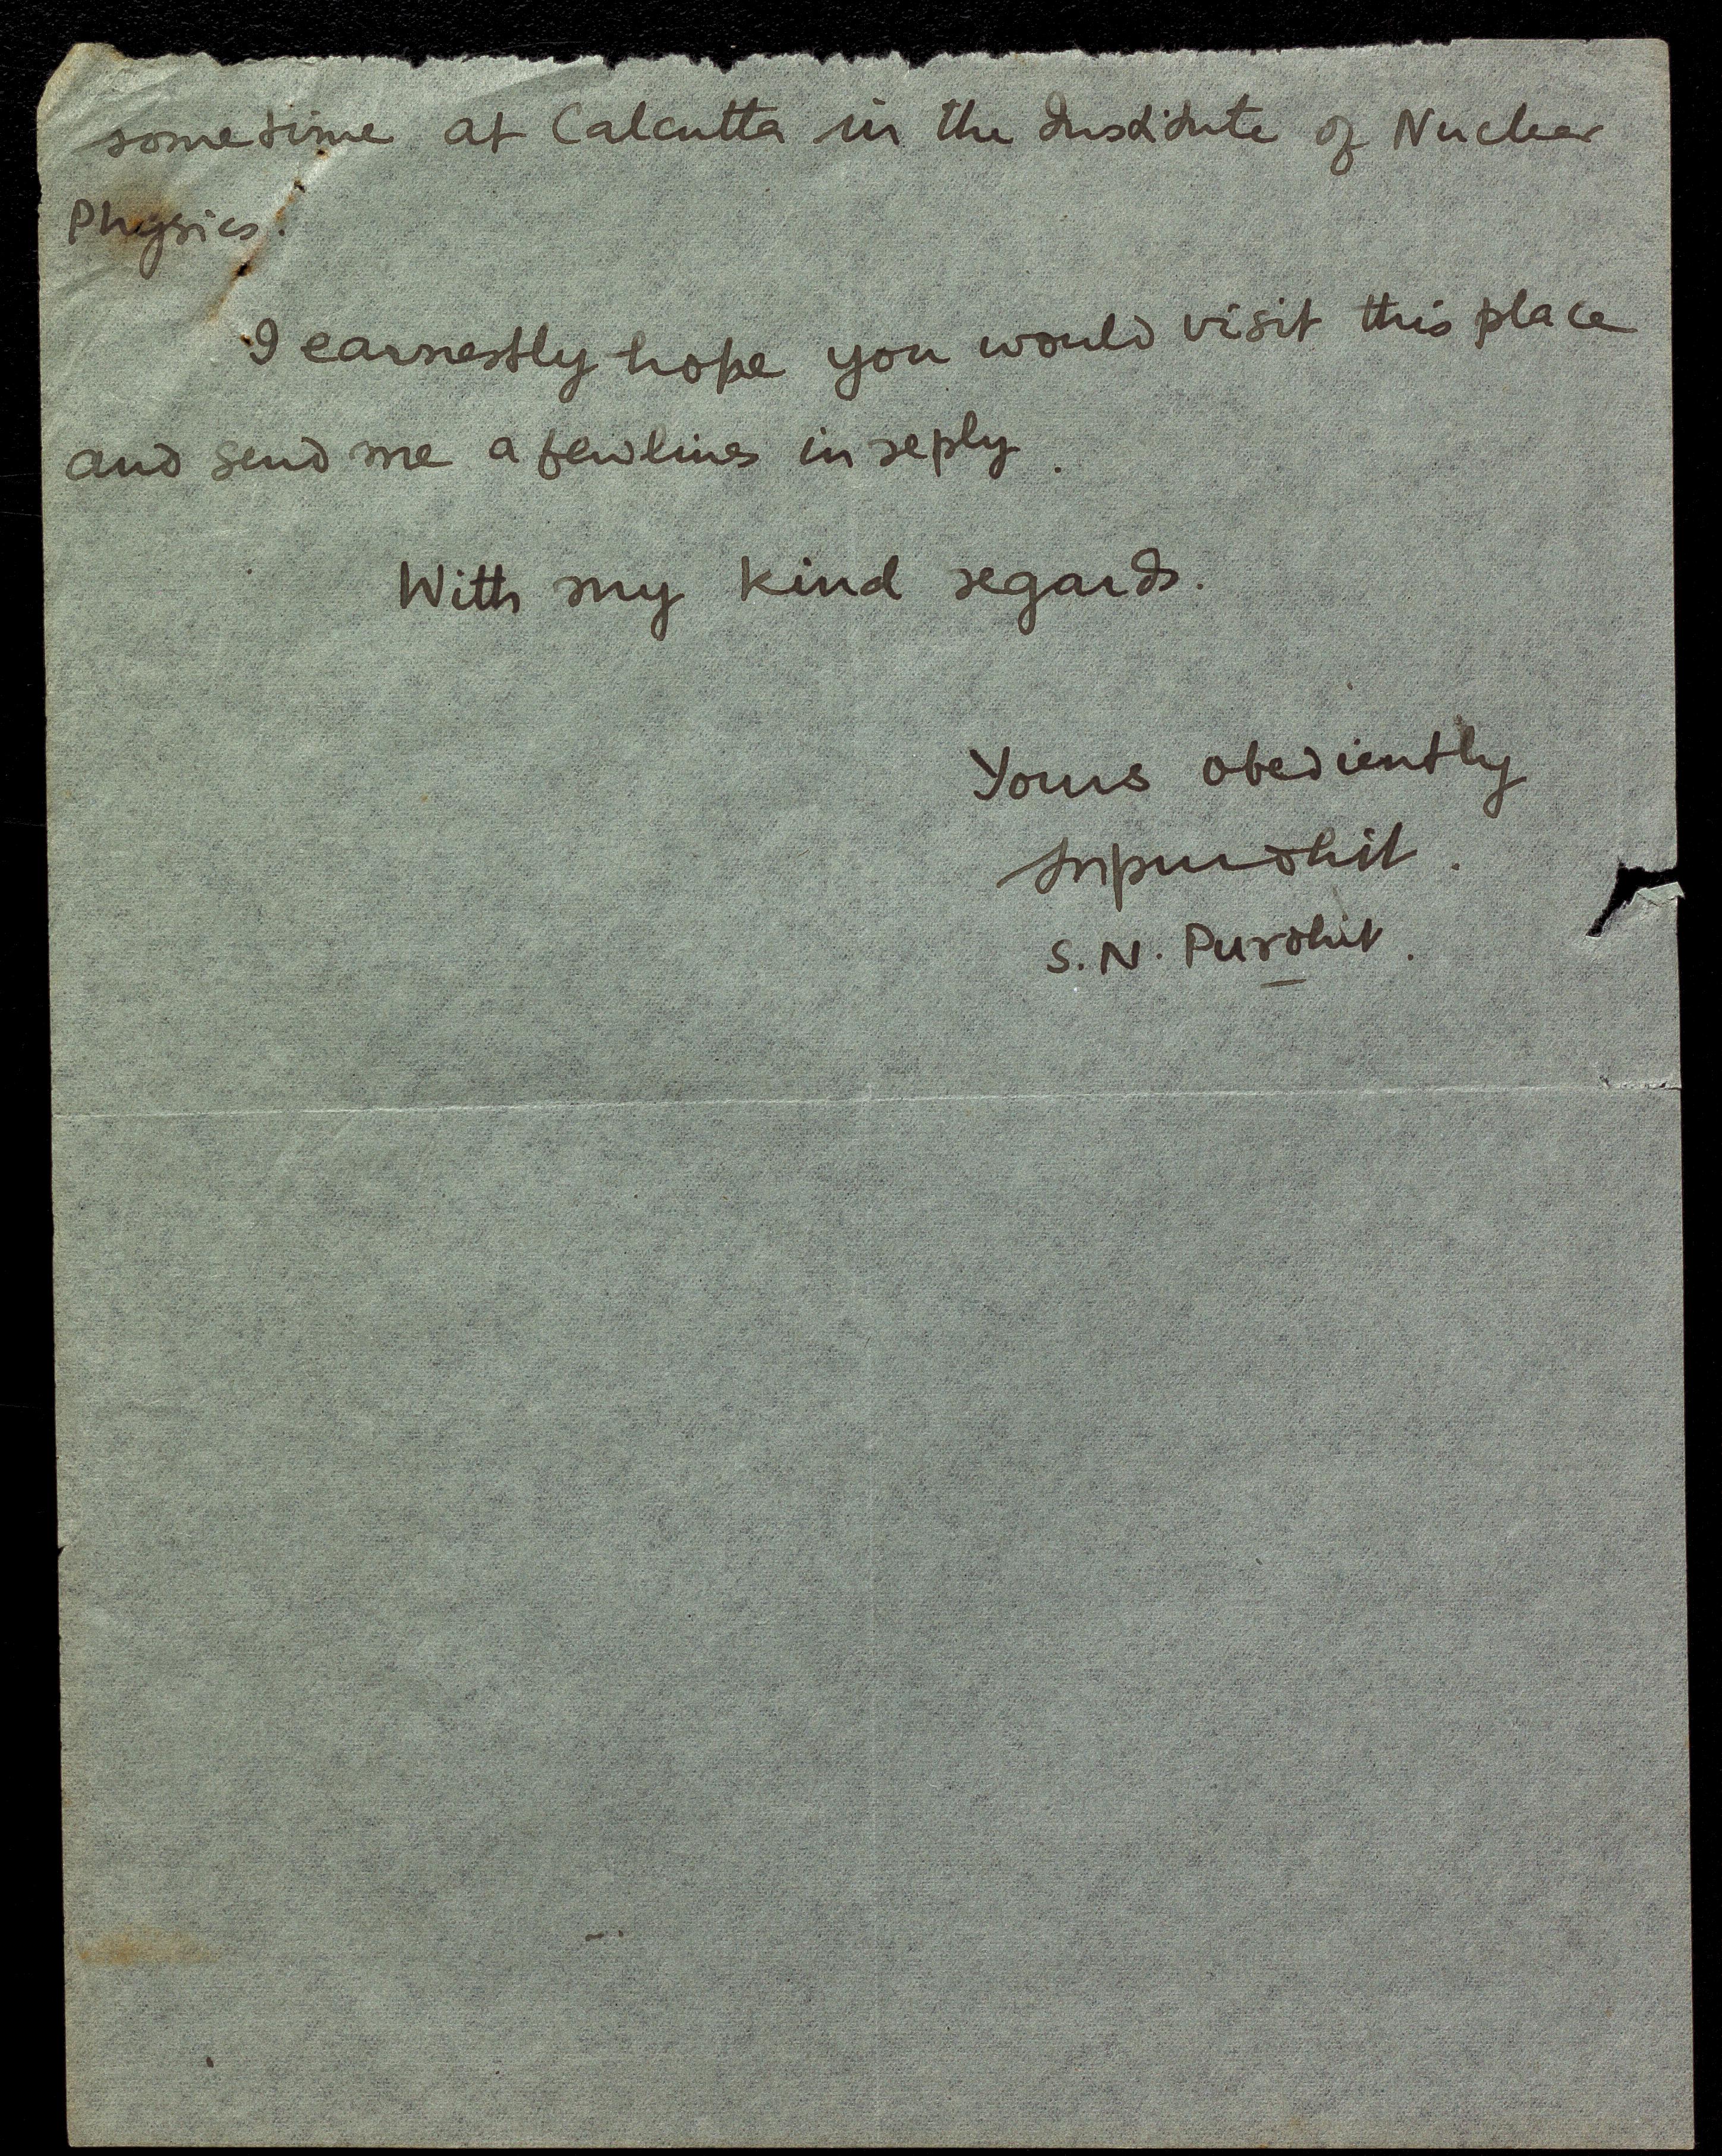 sometime at Calcutta in the Institute of Nuclear
Physics.
I earnestly hope you would visit this place
and send me a few lines in reply.
With my kind regards.
Yours obediently
Snpurohit.
S.N. Purohit.